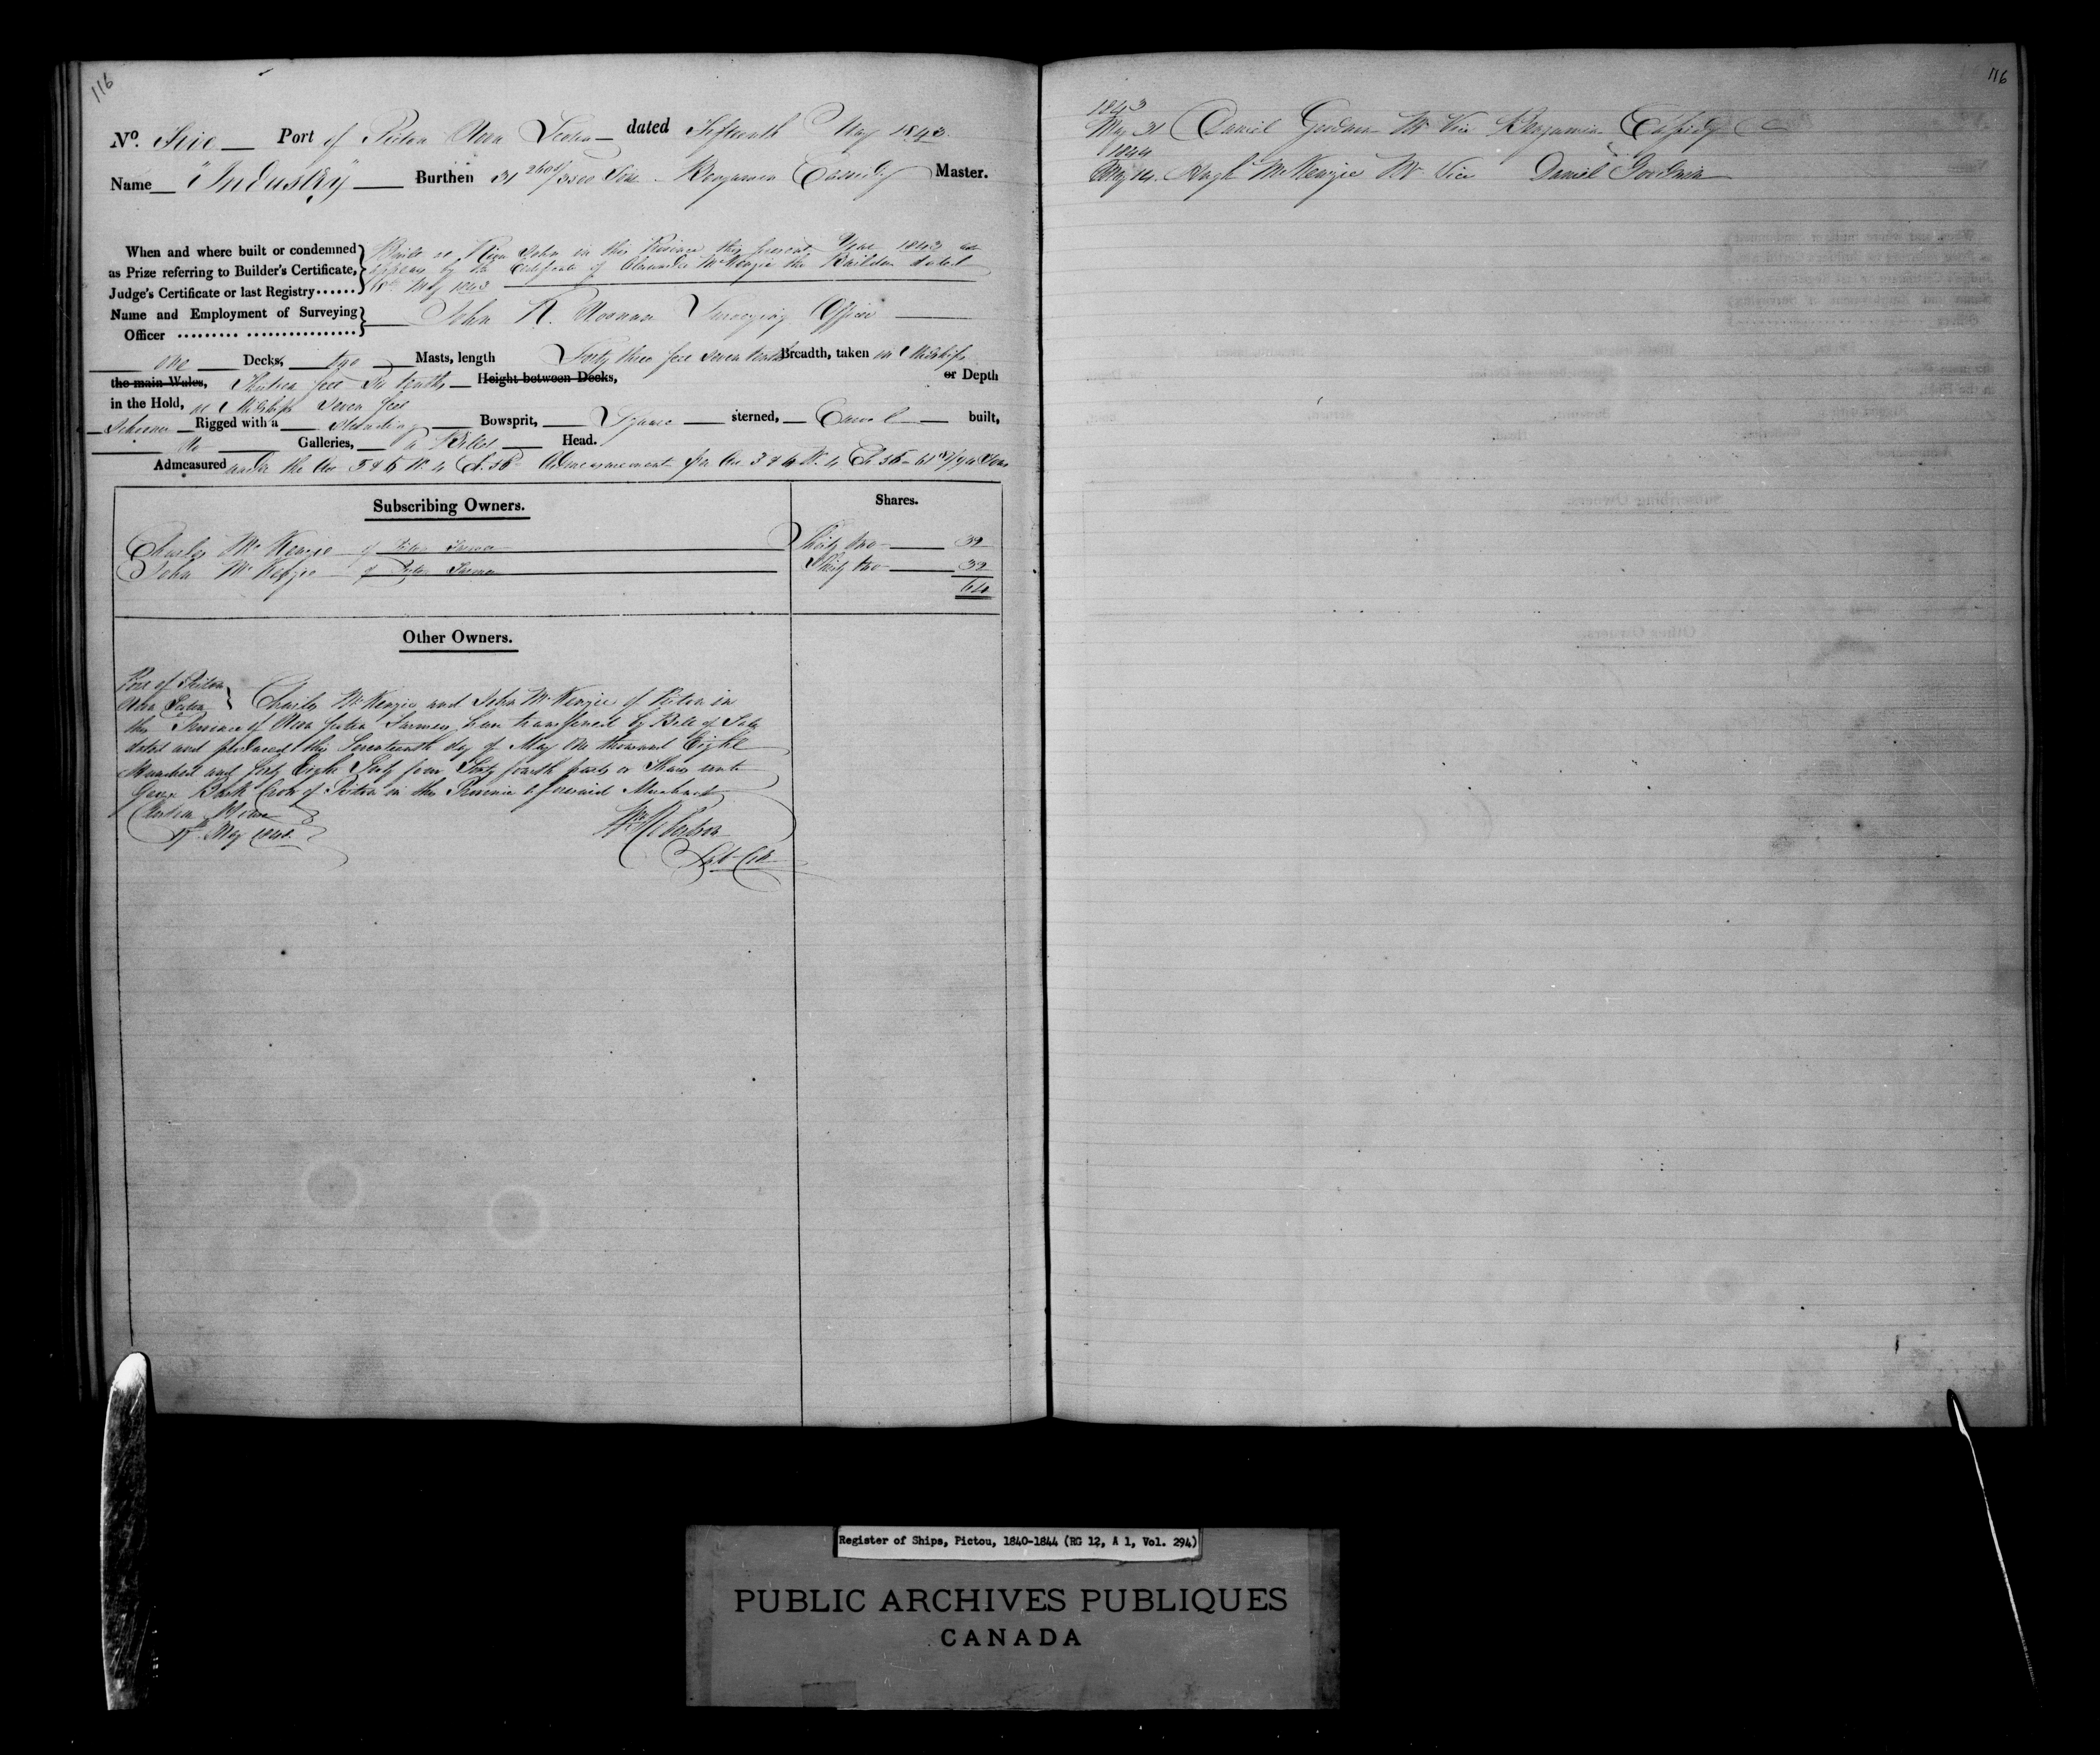 116
No. Five Port of Pictou Nova Scotia dated Fifteenth May 1843
Name "Industry" Burthen 31 /3500 Tons Benjamin Cassidy Master.
When and where built or condemned
as Prize referring to Builder's Certificate,
Judge's Certificate or last Registry
Built at River John in this Province this present Year 1843 as
appears by the Certificate of Alexander McKenzie the Builder dated
May 1843
Name and Employment of Surveying
Officer
John Surveying Officer
one Decks, two Masts, length Forty three feet seven tenths Breadth, taken in Midships
the main Wales, Thirteen feet six tenths Height between Decks, or Depth
in the Hold, at Midships seven feet
Schooner Rigged with a Standing Bowsprit, Square sterned, Carvel built,
No Galleries, a Billet Head.
Admeasured under the Act 5 & 6 W. 4 Ch. 56 Admeasurement per Act 3 & 4 W. 4 Ch 55 - 61 /94 Tons
Subscribing Owners. Shares.
Charles McKenzie of Pictou Farmer Thirty two 32
John McKenzie of Pictou Farmer Thirty two 32
64
Other Owners.
Port of Pictou
Nova Scotia
Charles McKenzie and John McKenzie of Pictou in
the Province of Nova Scotia Farmers have transferred by Bill of Sale
dated and produced this Seventeenth day of May One thousand Eight
Hundred and forty Eight Sixty four Sixty fourth parts or Shares unto
George Crow of Pictou in the Province aforesaid Merchant
Custom House
17th May 1848.
116
1843
May 31 Daniel Goodwin Mr Vice Benjamin Cassidy
1844
May 14. Hugh McKenzie Mr Vice Daniel Goodwin
Register of Ships, Pictou, 1840-1844 (RG 12, A 1, Vol. 294)
PUBLIC ARCHIVES PUBLIQUES
CANADA